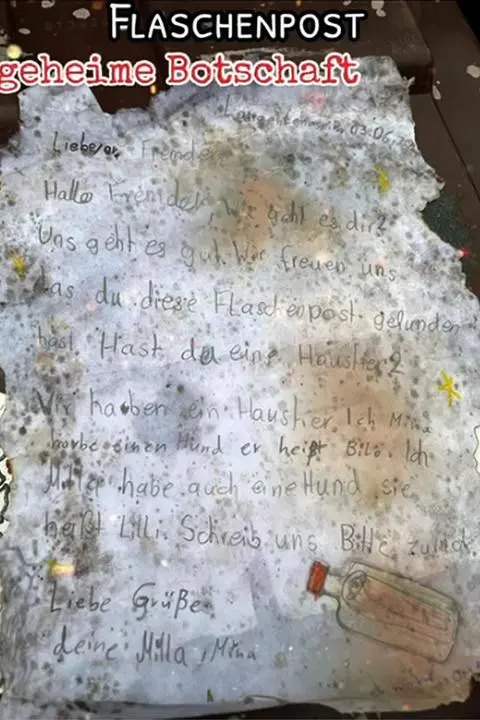 FLASCHENPOST
geheime Botschaft
03.06.
Liebe/er Fremder
Hallo Fremder, wie geht es dir?
Uns geht es gut. Wir freuen uns
das du diese Flaschenpost gefunden
hast. Hast du eine Haustier?
Wir haben ein Haustier. Ich Mina
habe einen Hund er heißt Bilo. Ich
Milla habe auch eine Hund sie
heißt Lilli. Schreib uns Bitte zurück
Liebe Grüße
deine Milla, Mina